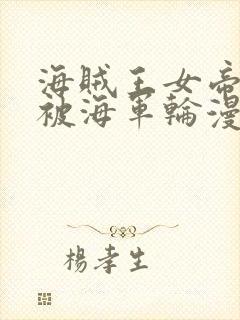 海賊王女帝
被海軍輪漫
楊孝生